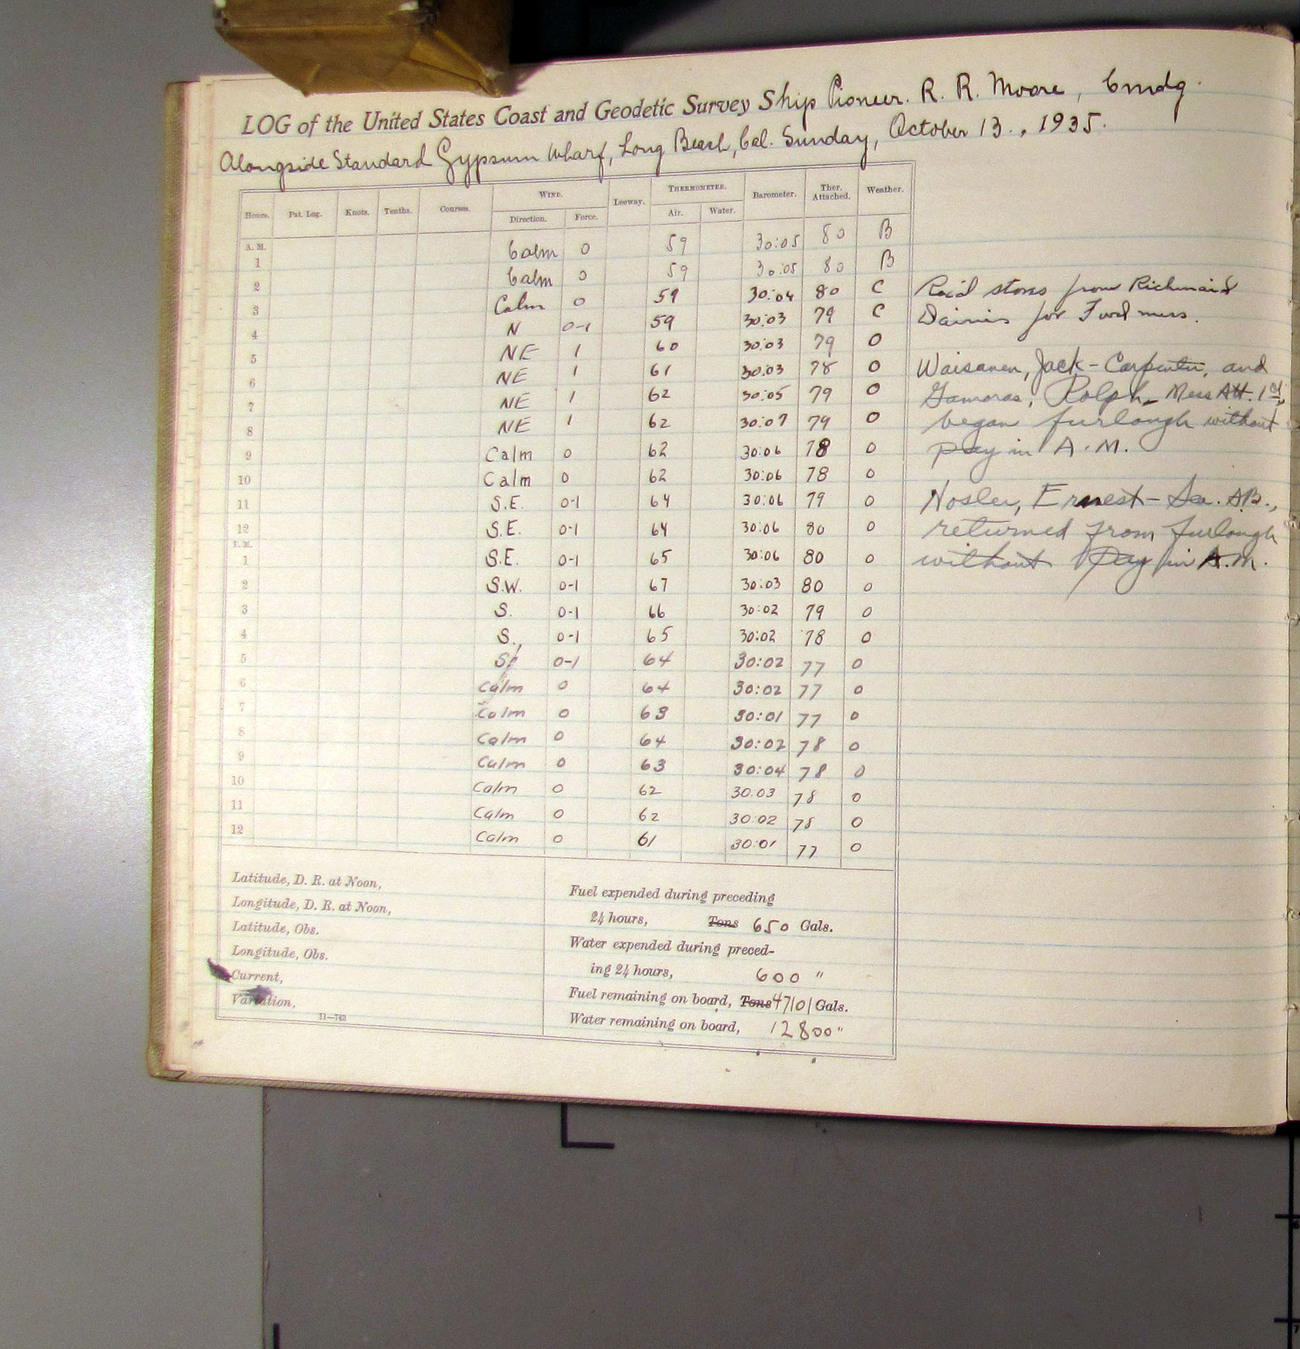 LOG of the United States Coast and Geodetic Survey Ship Pioneer. R. R. Moore, Cmdg.
Alongside Standard Gypsum Wharf, Long Beach, Cal. Sunday, October 13., 1935.
Hours. Pat. Log. Knots. Tenths. Courses. WIND. Leeway. THERMOMETER. Barometer. Ther. Attached. Weather.
Direction. Force. Air. Water.
A. M.
1 Calm 0 59 30:05 80 B
2 Calm 0 59 30:05 80 B
3 Calm 0 59 30:04 80 C
4 N 0-1 59 30:03 79 C
5 NE 1 60 30:03 79 O
6 NE 1 61 30:03 78 O
7 NE 1 62 30:05 79 O
8 NE 1 62 30:07 79 O
9 Calm 0 62 30:06 78 O
10 Calm 0 62 30:06 78 O
11 S.E. 0-1 64 30:06 79 O
12 S.E. 0-1 64 30:06 80 O
P. M.
1 S.E. 0-1 65 30:06 80 O
2 S.W. 0-1 67 30:03 80 O
3 S. 0-1 66 30:02 79 O
4 S. 0-1 65 30:02 78 O
5 0-1 64 30:02 77 O
6 Calm 0 64 30:02 77 O
7 Calm 0 63 30:01 77 O
8 Calm 0 64 30:02 78 O
9 Calm 0 63 30:04 78 O
10 Calm 0 62 30:03 78 O
11 Calm 0 62 30:02 78 O
12 Calm 0 61 30:01 77 O
Rec'd stores from Richmaid
Dairies for Fwd mess.
Waisanen, Jack - Carpenter, and
Gamoras, Rolph - Mess Att. 1cl,
began furlough without
pay in A.M.
Nosler, Ernest - Sea. AB.,
returned from furlough
without pay in A.M.
Latitude, D. R. at Noon,
Longitude, D. R. at Noon,
Latitude, Obs.
Longitude, Obs.
Current,
Variation,
11—763
Fuel expended during preceding
24 hours, Tons 650 Gals.
Water expended during preced-
ing 24 hours, 600 "
Fuel remaining on board, Tons 47101 Gals.
Water remaining on board, 12800 "